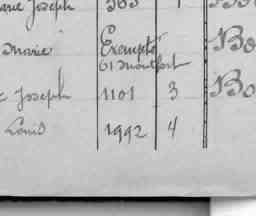 Joseph 363 1 Bo
Marie Exempté Bo
61 Montfort
Joseph 1101 3 Bo
Louis 1992 4